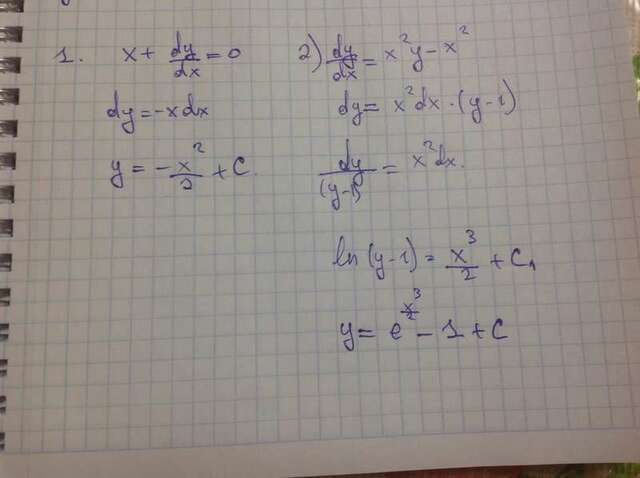 1. x + dy/dx = 0
dy = -xdx
y = -x²/2 + C.
2) dy/dx = x²y - x²
dy = x²dx · (y-1)
dy/(y-1) = x²dx.
ln(y-1) = x³/2 + C₁
y = e^(x³/2) - 1 + C